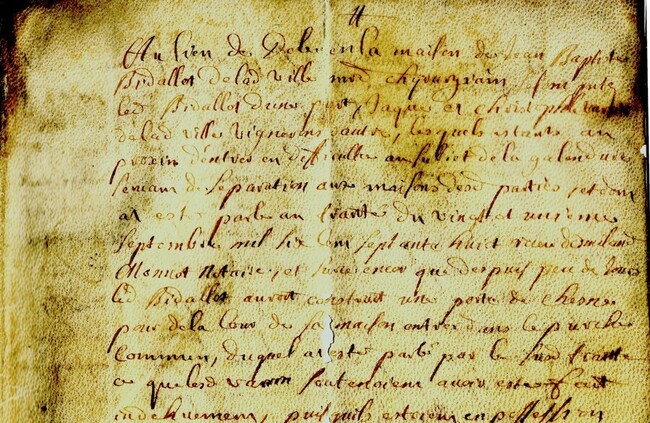 Au lieu de Dole en la maison de Jean Baptiste
Bidallot de lad ville md chyrurgrain, sont
led Bidallot dune part, Jaque et Christophle
de lad ville vignerons dautre, lesquels estants au
dentrer en difficulte au subiet de la
servant de separation aux maisons desd parties, et dont
at este parle au traite du vingt et unieme
septembre mil six cent septante huict receu de
Monnot notaire, et sur encor que despuis peu de jours
led Bidallot auroit construit une porte de chesne
pour de la cour de sa maison entrer dans le
commun, duquel at este parlé par le susd traité
ce que lesd soutenoient avoir esté fait
induement, puis quils estoient en possession